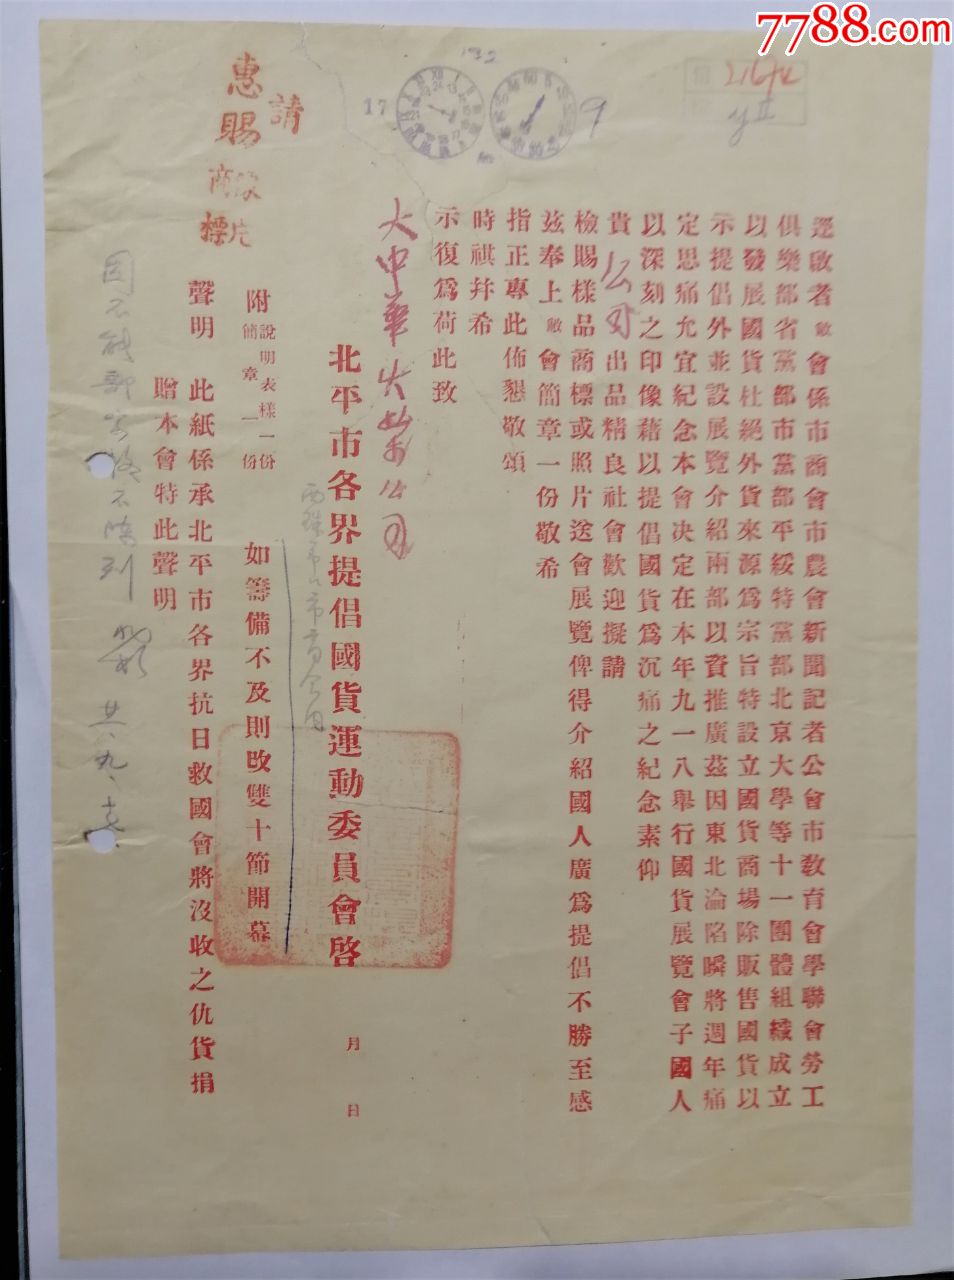 7788.com
逕啟者敝會係市商會市農會新聞記者公會市教育會學聯會勞工
俱樂部省黨部市黨部平綏特黨部北京大學等十一團體組織成立
以發展國貨杜絕外貨來源爲宗旨特設立國貨商場除販售國貨以
示提倡外並設展覽介紹兩部以資推廣茲因東北淪陷瞬將週年痛
定思痛允宜紀念本會決定在本年九一八舉行國貨展覽會子國人
以深刻之印像藉以提倡國貨爲沉痛之紀念素仰
貴公司出品精良社會歡迎擬請
檢賜樣品商標或照片送會展覽俾得介紹國人廣爲提倡不勝至感
茲奉上敝會簡章一份敬希
指正專此佈懇敬頌
時祺幷希
示復爲荷此致
大中華火柴公司
北平市各界提倡國貨運動委員會啓 月 日
附說明表樣一份簡章一份 如籌備不及則改雙十節開幕
聲明 此紙係承北平市各界抗日救國會將沒收之仇貨捐
贈本會特此聲明
請
惠賜
商標
片
17
9
216